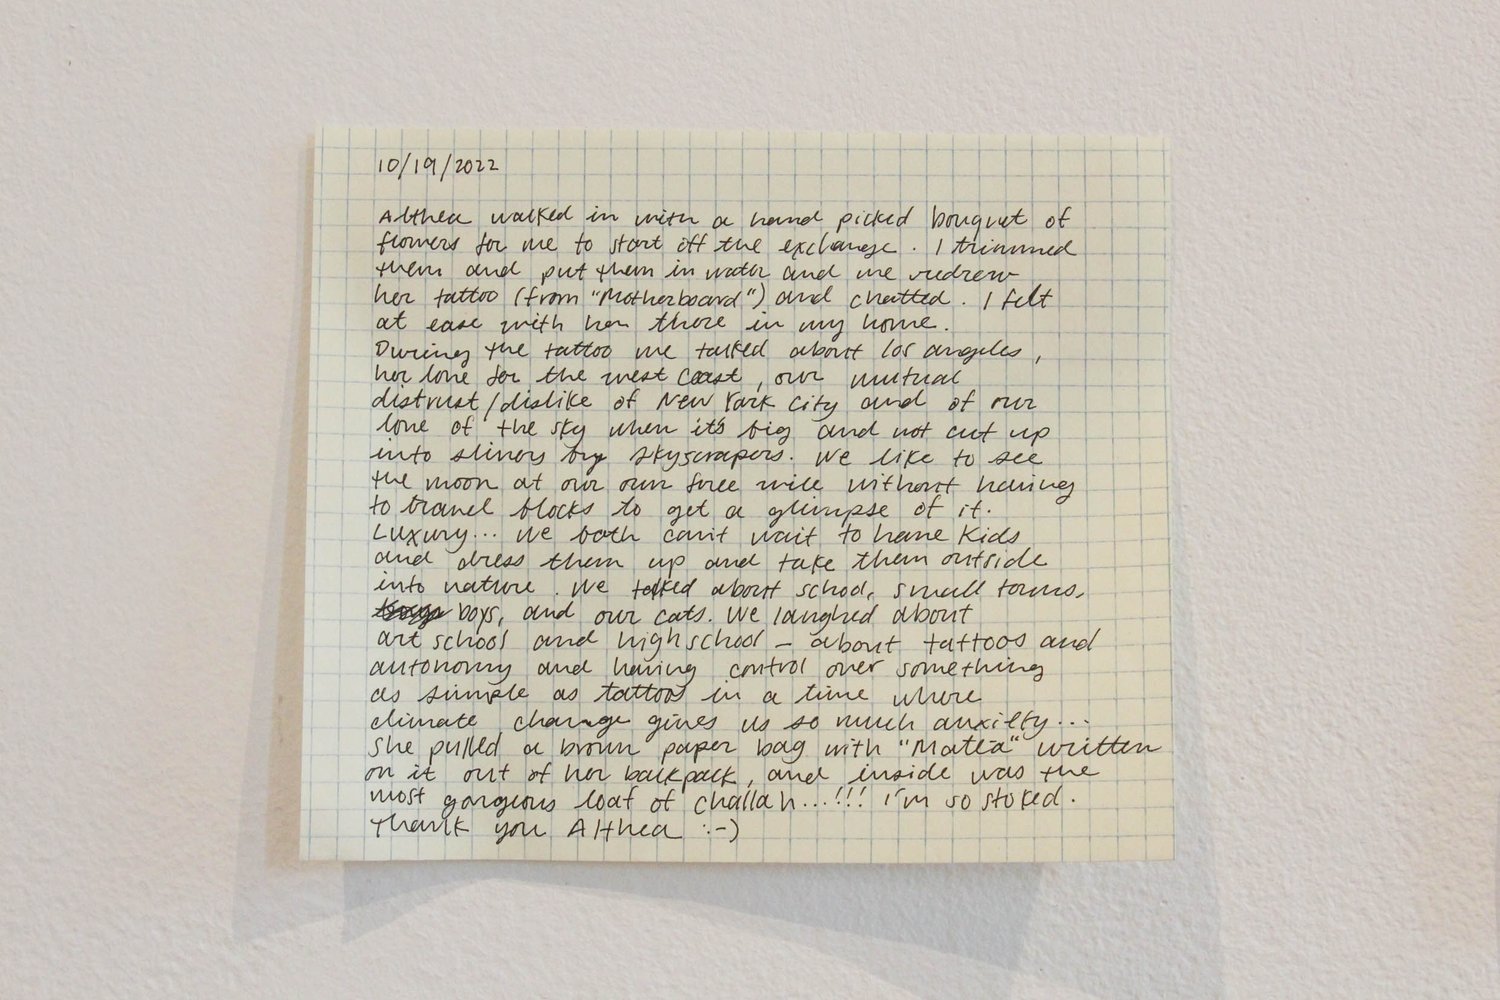 10/19/2022
Althea walked in with a hand picked bouquet of
flowers for me to start off the exchange. I trimmed
them and put them in water and we redrew
her tattoo (from "Motherboard") and chatted. I felt
at ease with her there in my home.
During the tattoo we talked about los angeles,
her love for the west coast, our mutual
distrust/dislike of New York City and of our
love of the sky when it's big and not cut up
into slivers by skyscrapers. We like to see
the moon at our own free will without having
to travel blocks to get a glimpse of it.
Luxury... We both can't wait to have kids
and dress them up and take them outside
into nature. We talked about school, small towns,
boys, and our cats. We laughed about
art school and highschool - about tattoos and
autonomy and having control over something
as simple as tattoos in a time where
climate change gives us so much anxiety...
She pulled a brown paper bag with "Matea" written
on it out of her backpack, and inside was the
most gorgeous loaf of challah...!!! i'm so stoked.
Thank you Althea :-)